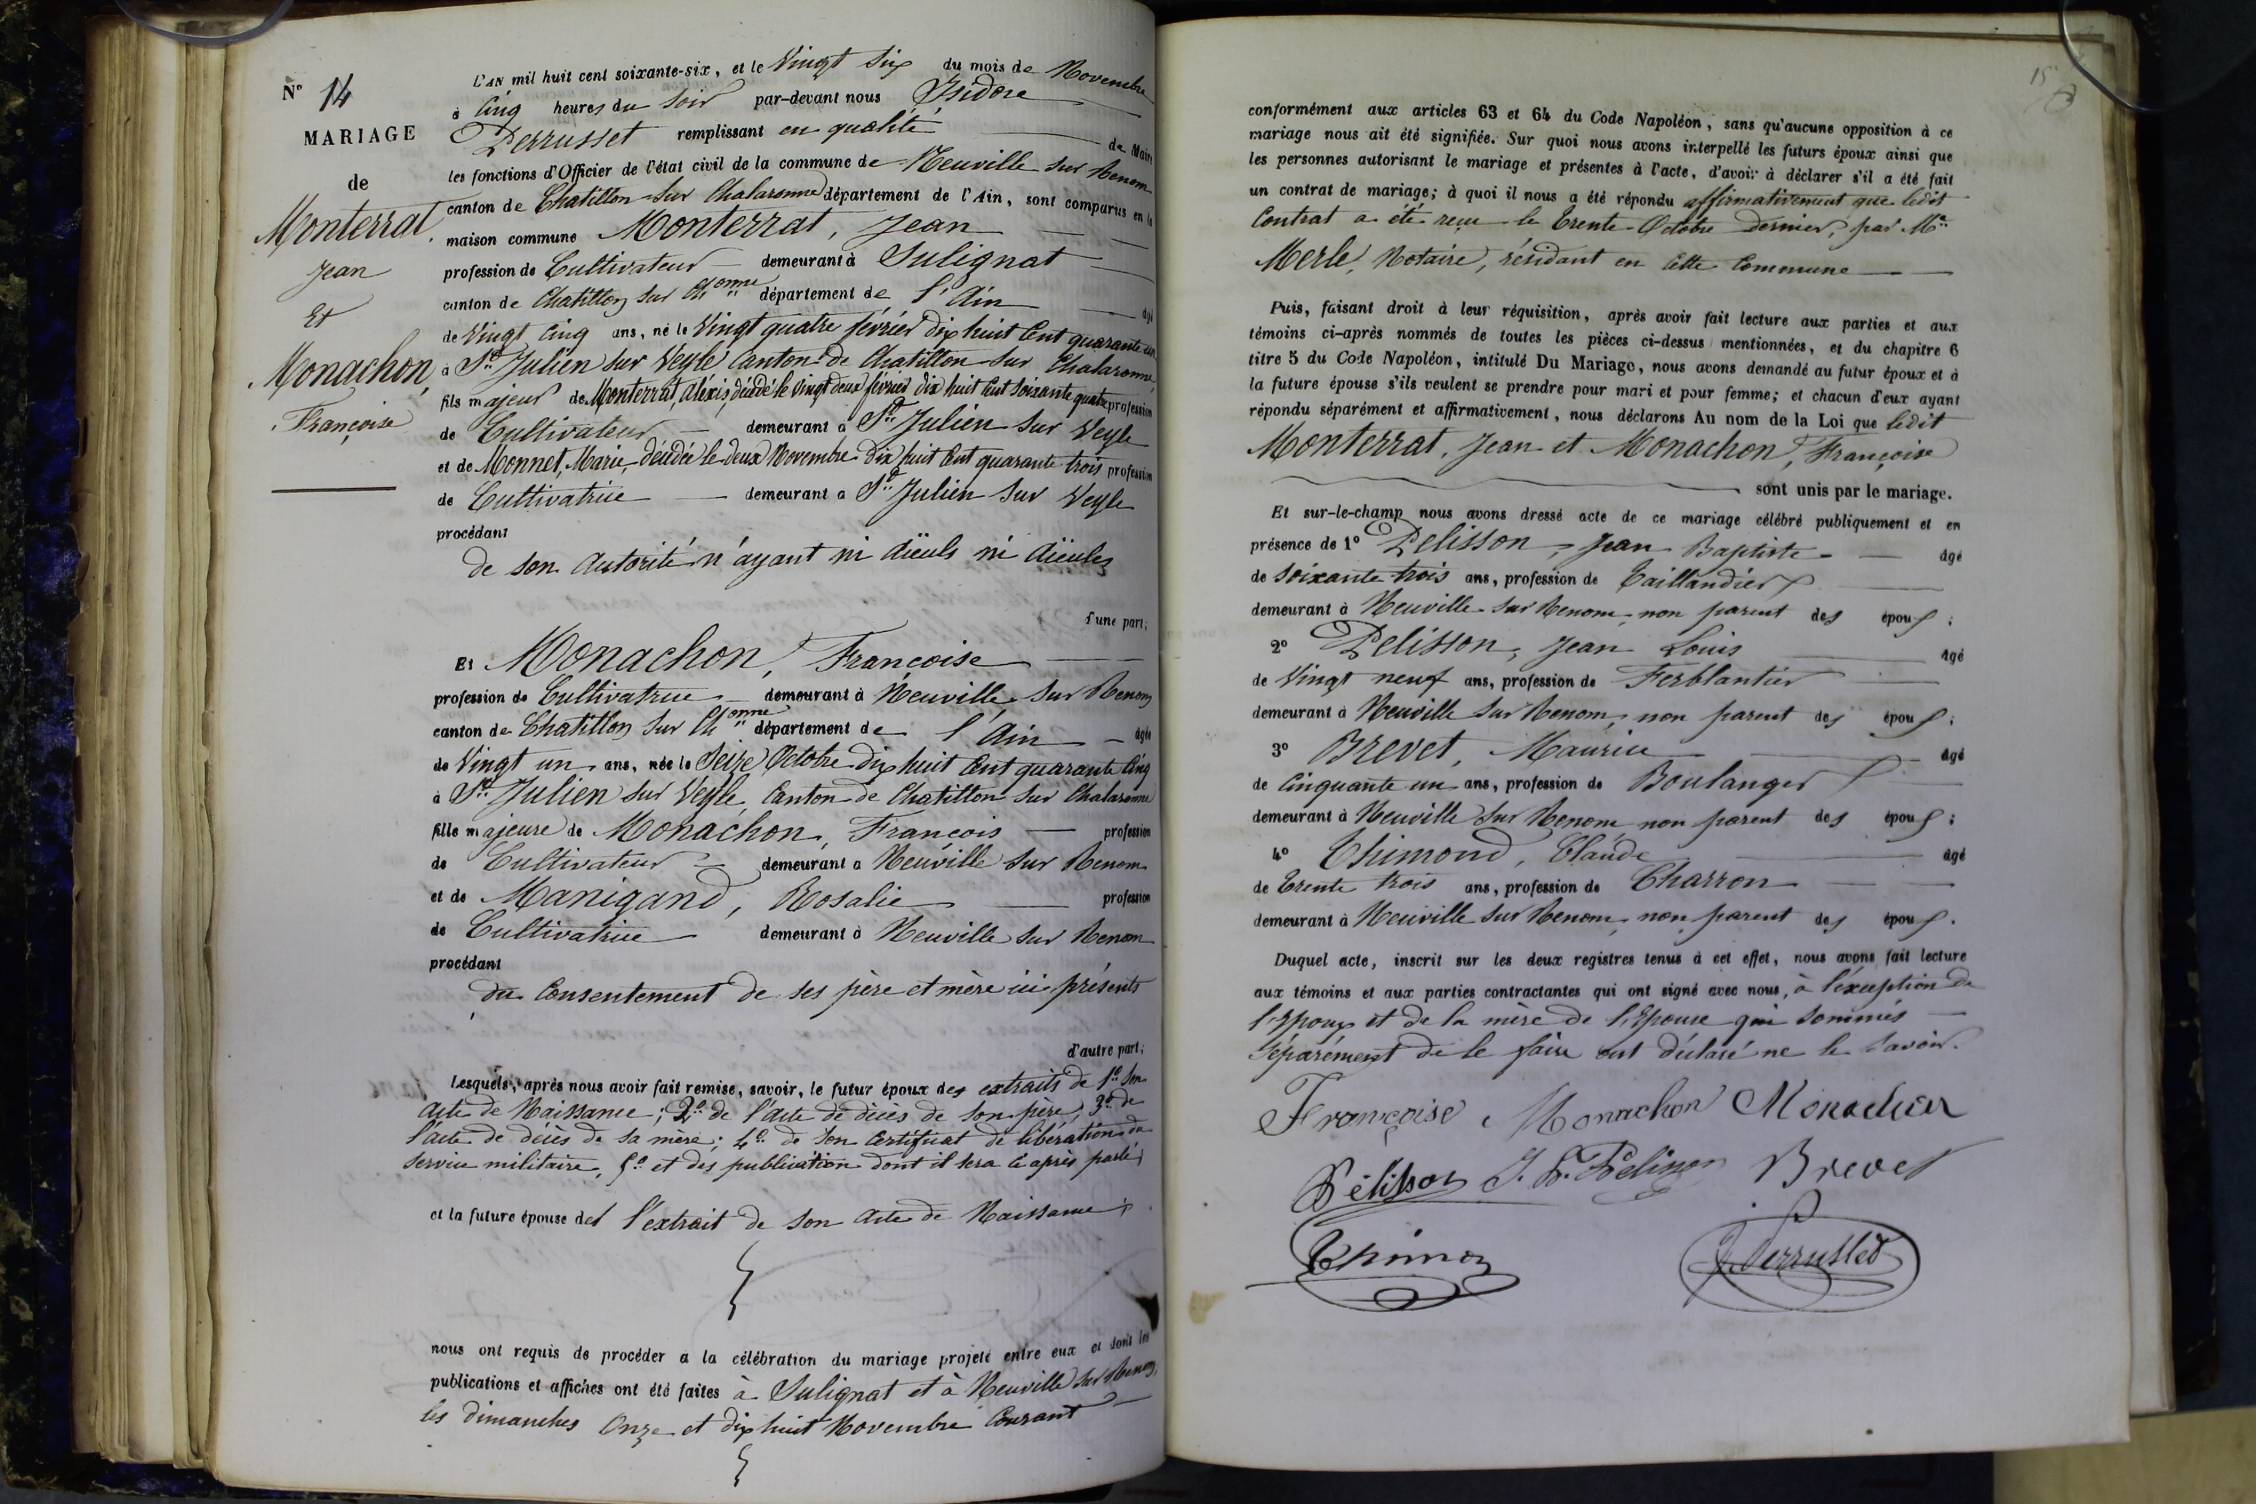 N° 14
MARIAGE
de
Monterrat
Jean
Et
Monachon,
Françoise
L'AN mil huit cent soixante-six, et le Vingt Six du mois de Novembre
à Cinq heures du Soir par-devant nous Isidore
Perrusset remplissant en qualité de Maire
les fonctions d'Officier de l'état civil de la commune de Neuville sur Renom
canton de Chatillon sur Chalaronne département de l'Ain, sont comparus en la
maison commune Monterrat, Jean
profession de Cultivateur demeurant à Sulignat
canton de Chatillon sur Ch.onne département de l'Ain âgé
de Vingt Cinq ans, né le Vingt quatre février dix huit Cent quarante un
à St Julien sur Veyle Canton de Chatillon sur Chalaronne,
fils majeur de Monterrat, Alexis, décédé le Vingt deux février dix huit Cent Soixante quatre profession
de Cultivateur demeurant à St Julien sur Veyle
et de Monnet, Marie, décédée le deux Novembre dix huit Cent quarante trois profession
de Cultivatrice demeurant à St Julien sur Veyle
procédant
de son autorité n'ayant ni aïeuls ni aïeules
d'une part;
Et Monachon, Françoise
profession de Cultivatrice demeurant à Neuville sur Renom
canton de Chatillon sur Ch.onne département de l'Ain âgée
de Vingt un ans, née le Seize Octobre dix huit Cent quarante Cinq
à St Julien sur Veyle, Canton de Chatillon sur Chalaronne
fille majeure de Monachon, François profession
de Cultivateur demeurant à Neuville sur Renom
et de Manigand, Rosalie profession
de Cultivatrice demeurant à Neuville sur Renom
procédant
du Consentement de ses père et mère ici présents
d'autre part;
Lesquels, après nous avoir fait remise, savoir, le futur époux des extraits de 1° Son
acte de Naissance; 2° de l'acte de décès de son père, 3° de
l'acte de décès de sa mère; 4° de son Certificat de libération du
service militaire, 5° et des publication dont il sera ci après parlé;
et la future épouse de l'extrait de son acte de Naissance;
nous ont requis de procéder à la célébration du mariage projeté entre eux et dont les
publications et affiches ont été faites à Sulignat et à Neuville sur Renom,
les dimanches Onze et dix huit Novembre Courant
15
conformément aux articles 63 et 64 du Code Napoléon, sans qu'aucune opposition à ce
mariage nous ait été signifiée. Sur quoi nous avons interpellé les futurs époux ainsi que
les personnes autorisant le mariage et présentes à l'acte, d'avoir à déclarer s'il a été fait
un contrat de mariage; à quoi il nous a été répondu affirmativement que ledit
Contrat a été reçu le trente Octobre dernier, par Me
Merle, Notaire, résidant en cette Commune
Puis, faisant droit à leur réquisition, après avoir fait lecture aux parties et aux
témoins ci-après nommés de toutes les pièces ci-dessus mentionnées, et du chapitre 6
titre 5 du Code Napoléon, intitulé Du Mariage, nous avons demandé au futur époux et à
la future épouse s'ils veulent se prendre pour mari et pour femme; et chacun d'eux ayant
répondu séparément et affirmativement, nous déclarons Au nom de la Loi que ledit
Monterrat, Jean et Monachon, Françoise
sont unis par le mariage.
Et sur-le-champ nous avons dressé acte de ce mariage célébré publiquement et en
présence de 1° Pelisson, Jean Baptiste âgé
de Soixante trois ans, profession de Taillandier
demeurant à Neuville sur Renom, non parent des époux;
2° Pelisson, Jean Louis âgé
de Vingt neuf ans, profession de Ferblantier
demeurant à Neuville sur Renom, non parent des époux;
3° Brevet, Maurice âgé
de Cinquante un ans, profession de Boulanger
demeurant à Neuville sur Renom non parent des époux;
4° Thimond, Claude âgé
de Trente trois ans, profession de Charron
demeurant à Neuville sur Renom, non parent des époux.
Duquel acte, inscrit sur les deux registres tenus à cet effet, nous avons fait lecture
aux témoins et aux parties contractantes qui ont signé avec nous, à l'exception de
l'Epoux et de la mère de l'Epouse qui sommés
séparément de le faire ont déclaré ne le savoir.
Françoise Monachon Monachon
Pélisson J. L. Pelisson Brevet
Thimon
J. Perrusset